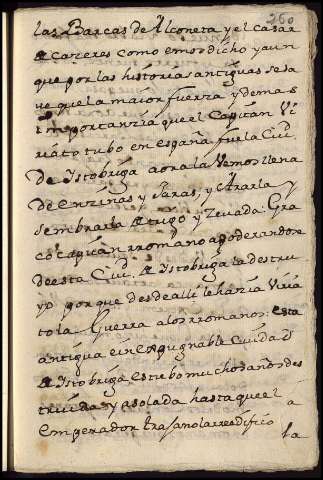 260
las Barcas de Alconeta y el Casar
de Cazeres como emos dicho y aun
que por las historias antiguas se sa
ve que la maior fuerza y de mas
importanzia que el Capitan Vi
riato tubo en españa fue la Ciud.
De Istobriga aora la Vemos llena
de Enzinas y Jaras, y Ararla y
sembrarla de trigo y Zevada: Gra
co Capitan rromano apoderandose
de esta Ciud. de Istobriga la destru
yo porque desde alli le hazia Viria
to la Guerra a los rromanos: esta
antigua e inexpugnable Ciudad
de Istobriga estubo muchos años des
truida y asolada hasta que el
emperador trajano la rreedifico
la